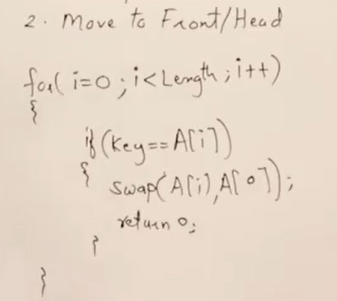 2. Move to Front/Head
for( i=0 ; i<Length ; i++)
{
if (key==A[i])
{ swap(A[i],A[0]);
return 0;
}
}